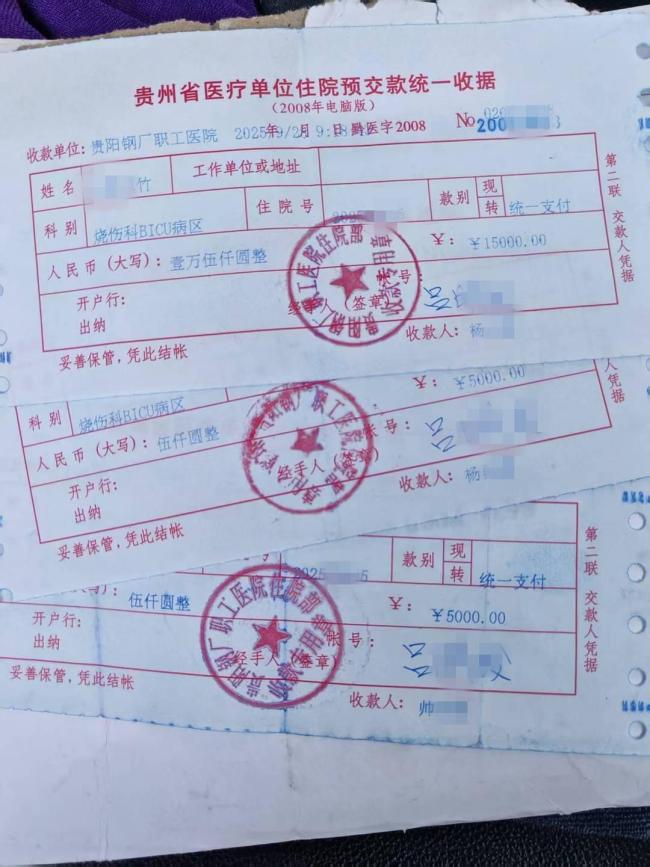 贵州省医疗单位住院预交款统一收据
(2008年电脑版)
收款单位: 贵阳钢厂职工医院 2025年9/2月9:18 黔医字2008 No 200 3
姓名 竹 工作单位或地址
科别 烧伤科BICU病区 住院号 2025 5 款别 现 转 统一支付
人民币(大写): 壹万伍仟圆整 ¥: ¥15000.00
开户行: 帐号:
出纳 经手人(签章)
收款人: 杨
妥善保管,凭此结帐
第二联 交款人凭据
贵阳钢厂职工医院住院部 收款专用章
科别 烧伤科BICU病区
人民币(大写): 伍仟圆整 ¥: ¥5000.00
开户行: 帐号:
出纳 经手人(签章)
收款人: 杨
妥善保管,凭此结帐
第二联 交款人凭据
号 2025 5 款别 现 转 统一支付
伍仟圆整 ¥: ¥5000.00
开户行: 帐号:
出纳 经手人(签章)
收款人: 帅
妥善保管,凭此结帐
第二联 交款人凭据
贵阳钢厂职工医院住院部